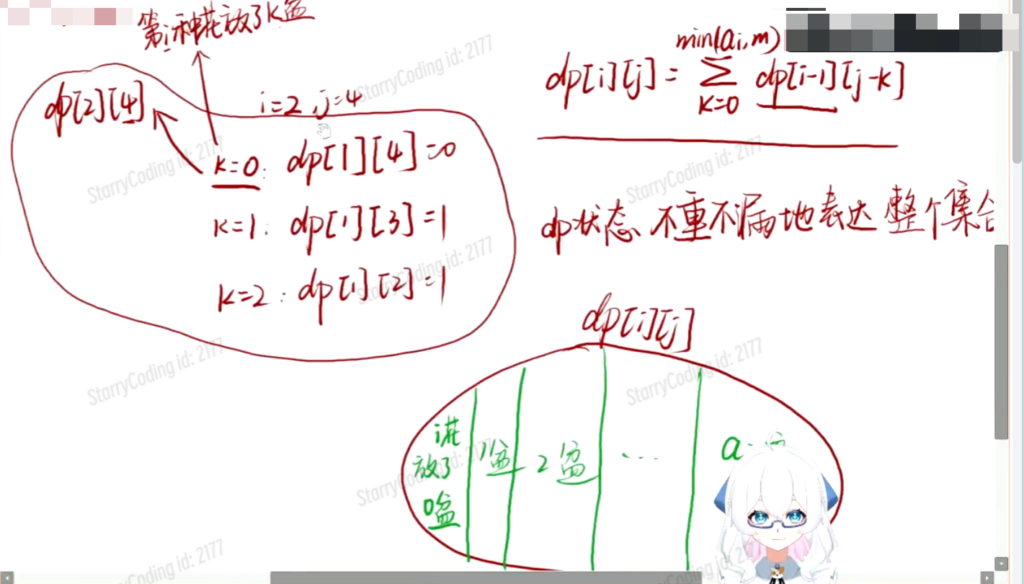 第i种花放了K盆
dp[2][4]
i=2, j=4
K=0: dp[1][4]=0
K=1: dp[1][3]=1
K=2: dp[1][2]=1
min(ai,m)
dp[i][j] = Σ dp[i-1][j-k]
K=0
dp状态 不重不漏地表达 整个集合
dp[i][j]
i花放了0盆
1盆
2盆
...
a
StarryCoding id: 2177
StarryCoding id: 2177
StarryCoding id: 2177
StarryCoding id: 2177
StarryCoding id: 2177
StarryCoding id: 2177
StarryCoding id: 2177
StarryCoding id: 2177
StarryCoding id: 2177